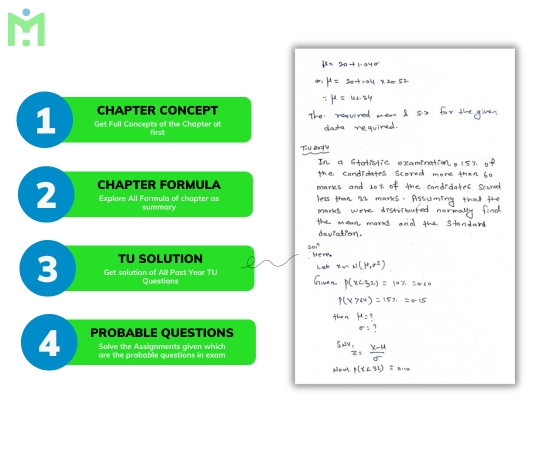 M
1
CHAPTER CONCEPT
Get Full Concepts of the Chapter at
first
2
CHAPTER FORMULA
Explore All Formula of chapter as
summary
3
TU SOLUTION
Get solution of All Past Year TU
Questions
4
PROBABLE QUESTIONS
Solve the Assignments given which
are the probable questions in exam
μ = 20 + 1.04σ
or, μ = 20 + 1.04 × 20.52
∴ μ = 41.34
The required mean & S.D for the given
data required.
In a statistic examination, 15% of
the candidates scored more than 60
marks and 10% of the candidates scored
less than 32 marks. Assuming that the
marks were distributed normally find
the mean marks and the standard
deviation.
Soln
Here,
Let X ~ N(μ, σ²)
Given P(X<32) = 10% = 0.10
P(X>64) = 15% = 0.15
then μ = ?
σ = ?
SNV,
Z = X-μ
σ
Now, P(X<32) = 0.10